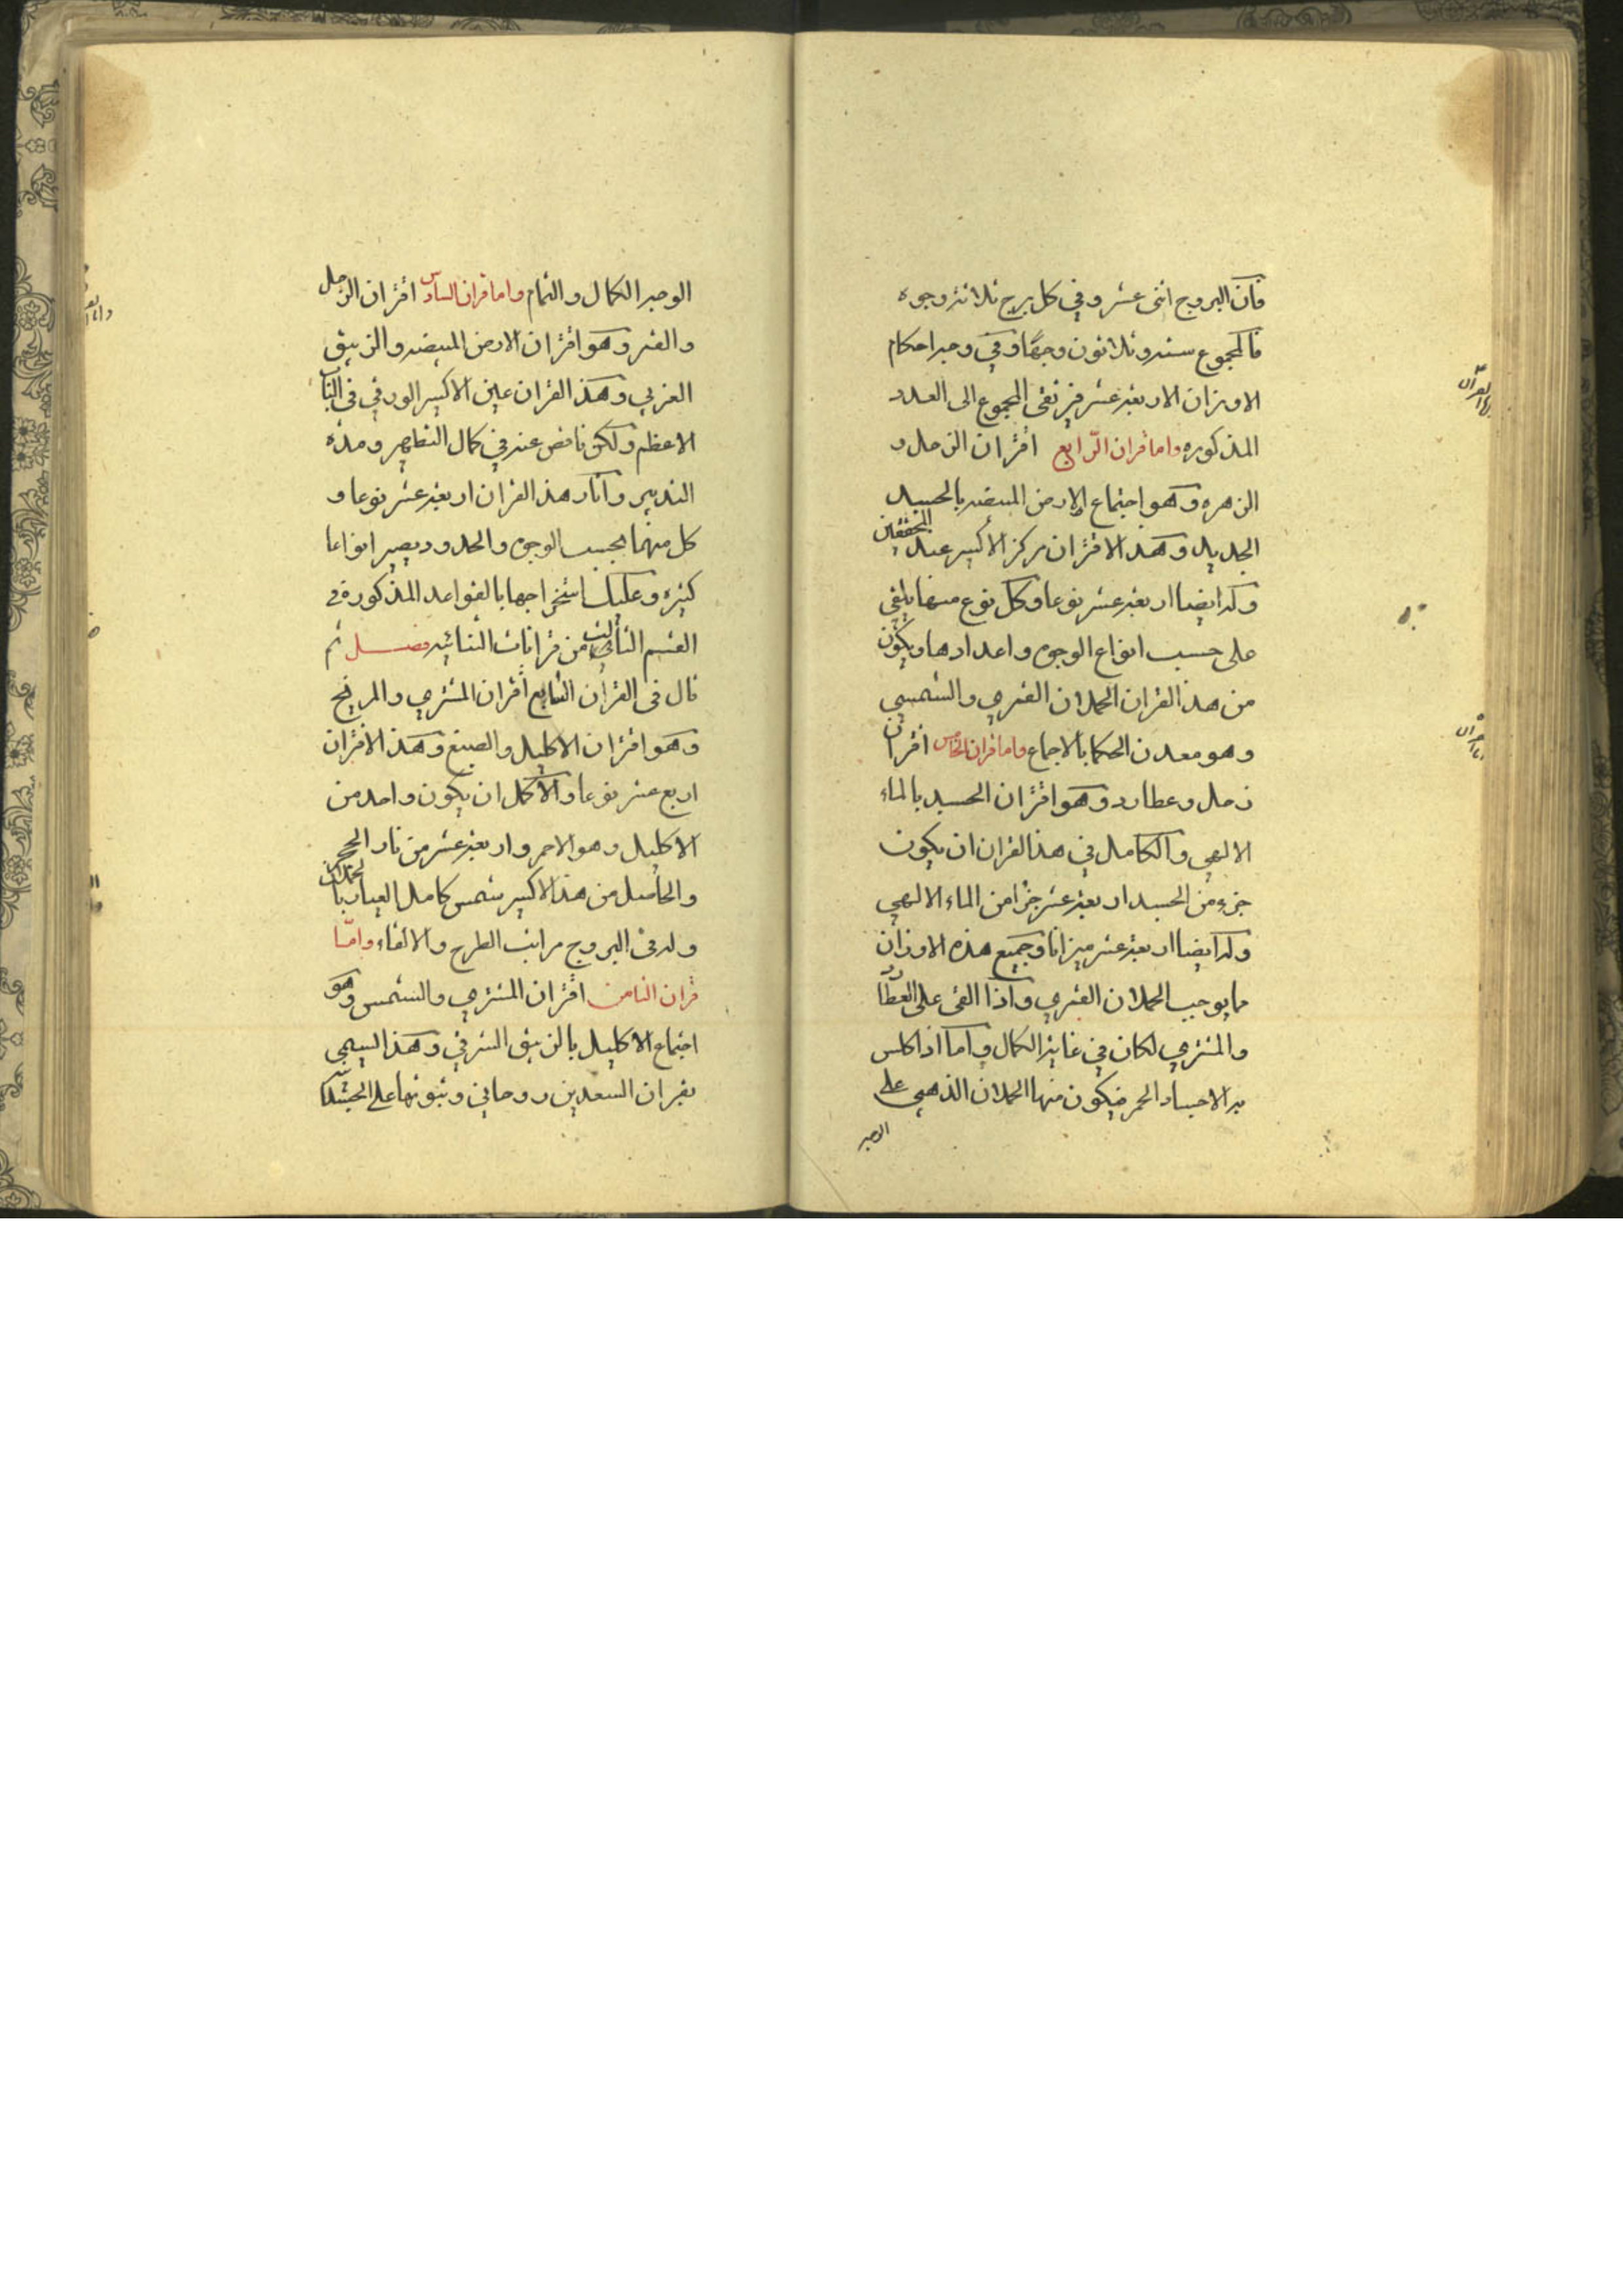 فان البروج اثنى عشر وفي كل برج ثلاثة وجوه
فالمجموع ستة وثلاثون وجهًا وفي وجه احكام
الاوزان الاربعة عشر فيرتقى المجموع الى العدد
المذكوره واما قران الرّابع اقتران الزحل و
الزهره وهو اجتماع الارض المبيضه بالجسد
الجديد وهذا الاقتران مركز الأكسير عند المحققين
وله ايضا اربعة عشر نوعا وكل نوع منها يلقى
على حسب انواع الوجوه واعدادها ويكون
من هذا القران الحملان القمري والشمسي
وهو معدن الحكما بالاجماع واما قران الخامس اقتران
زحل وعطارد وهو اقتران الجسد بالماء
الالهي والكامل في هذا القران ان يكون
جزء من الجسد اربعة عشر جزأ من الماء الالهي
وله ايضا اربعة عشر ميزانا وجميع هذه الاوزان
مما يوجب الحملان القمري واذا القى على العطارد
والمشتري لكان في غاية الكمال واما اذا كلس
به الاجساد الحمر فيكون منها الحملان الذهبي على
الوجه
الوجه الكمال والتمام واما قران السادس اقتران الزحل
والقمر وهو اقتران الارض المبيضه والزيبق
الغربي وهذا القران عين الاكسير الورقي في الباب
الاعظم ولكن ناقص عنه في كمال التطهير ومدة
التدبير وآثار هذا القران اربعة عشر نوعا و
كل منهما بحسب الوجوه والحدود يصير انواعا
كثيره وعليك استخراجها بالقواعد المذكورة في
القسم الثاني من قرانات الثنائيه فصل ثم
قال فى القران السابع اقتران المشتري والمريخ
وهو اقتران الاكليل والصبغ وهذا الاقتران
اربع عشر نوعا والأكمل ان يكون واحد من
الاكليل وهو الاحمر واربعة عشر من نار الحجر
والحاصل من هذا الاكسير شمس كامل العيار بالحملان
وله فى البروج مراتب الطرح والالقاء وامّا
قران الثامن اقتران المشتري والشمس وهو
اجتماع الاكليل بالزيبق الشرقي وهذا يسمى
بقران السعدين روحاني وثبوتها على